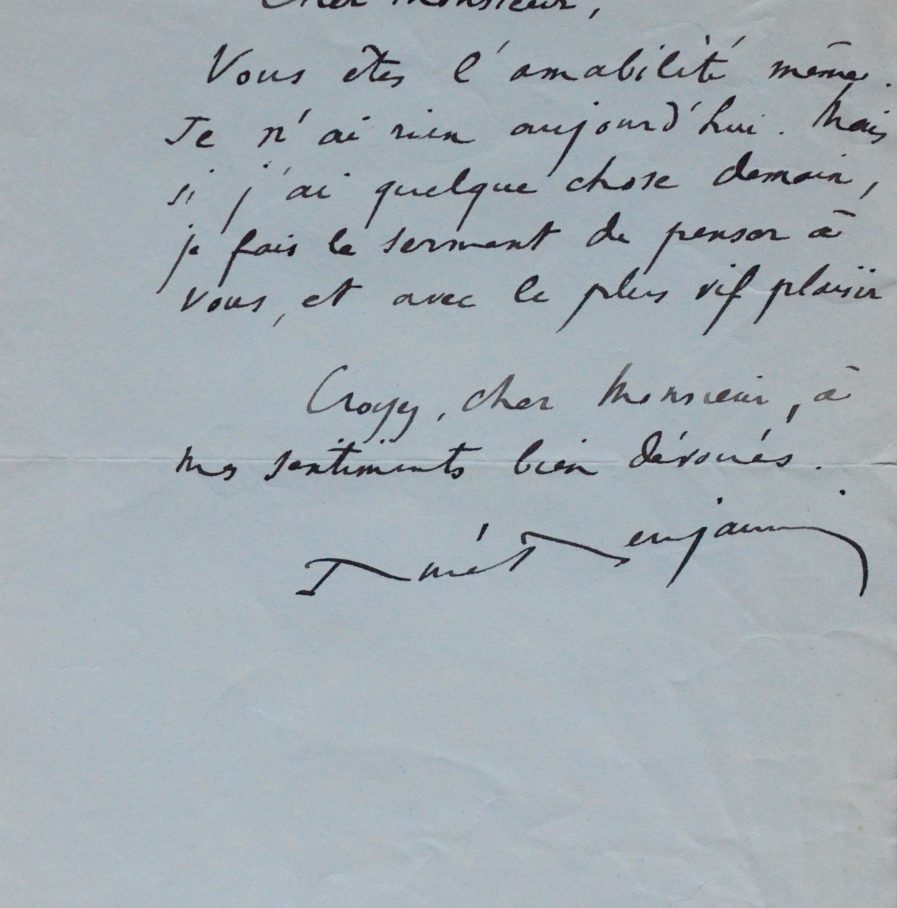 Cher Monsieur,
Vous êtes l'amabilité même.
Je n'ai rien aujourd'hui. Mais
si j'ai quelque chose demain,
je fais le serment de penser à
vous, et avec le plus vif plaisir
Croyez, cher Monsieur, à
mes sentiments bien dévoués.
René Benjamin